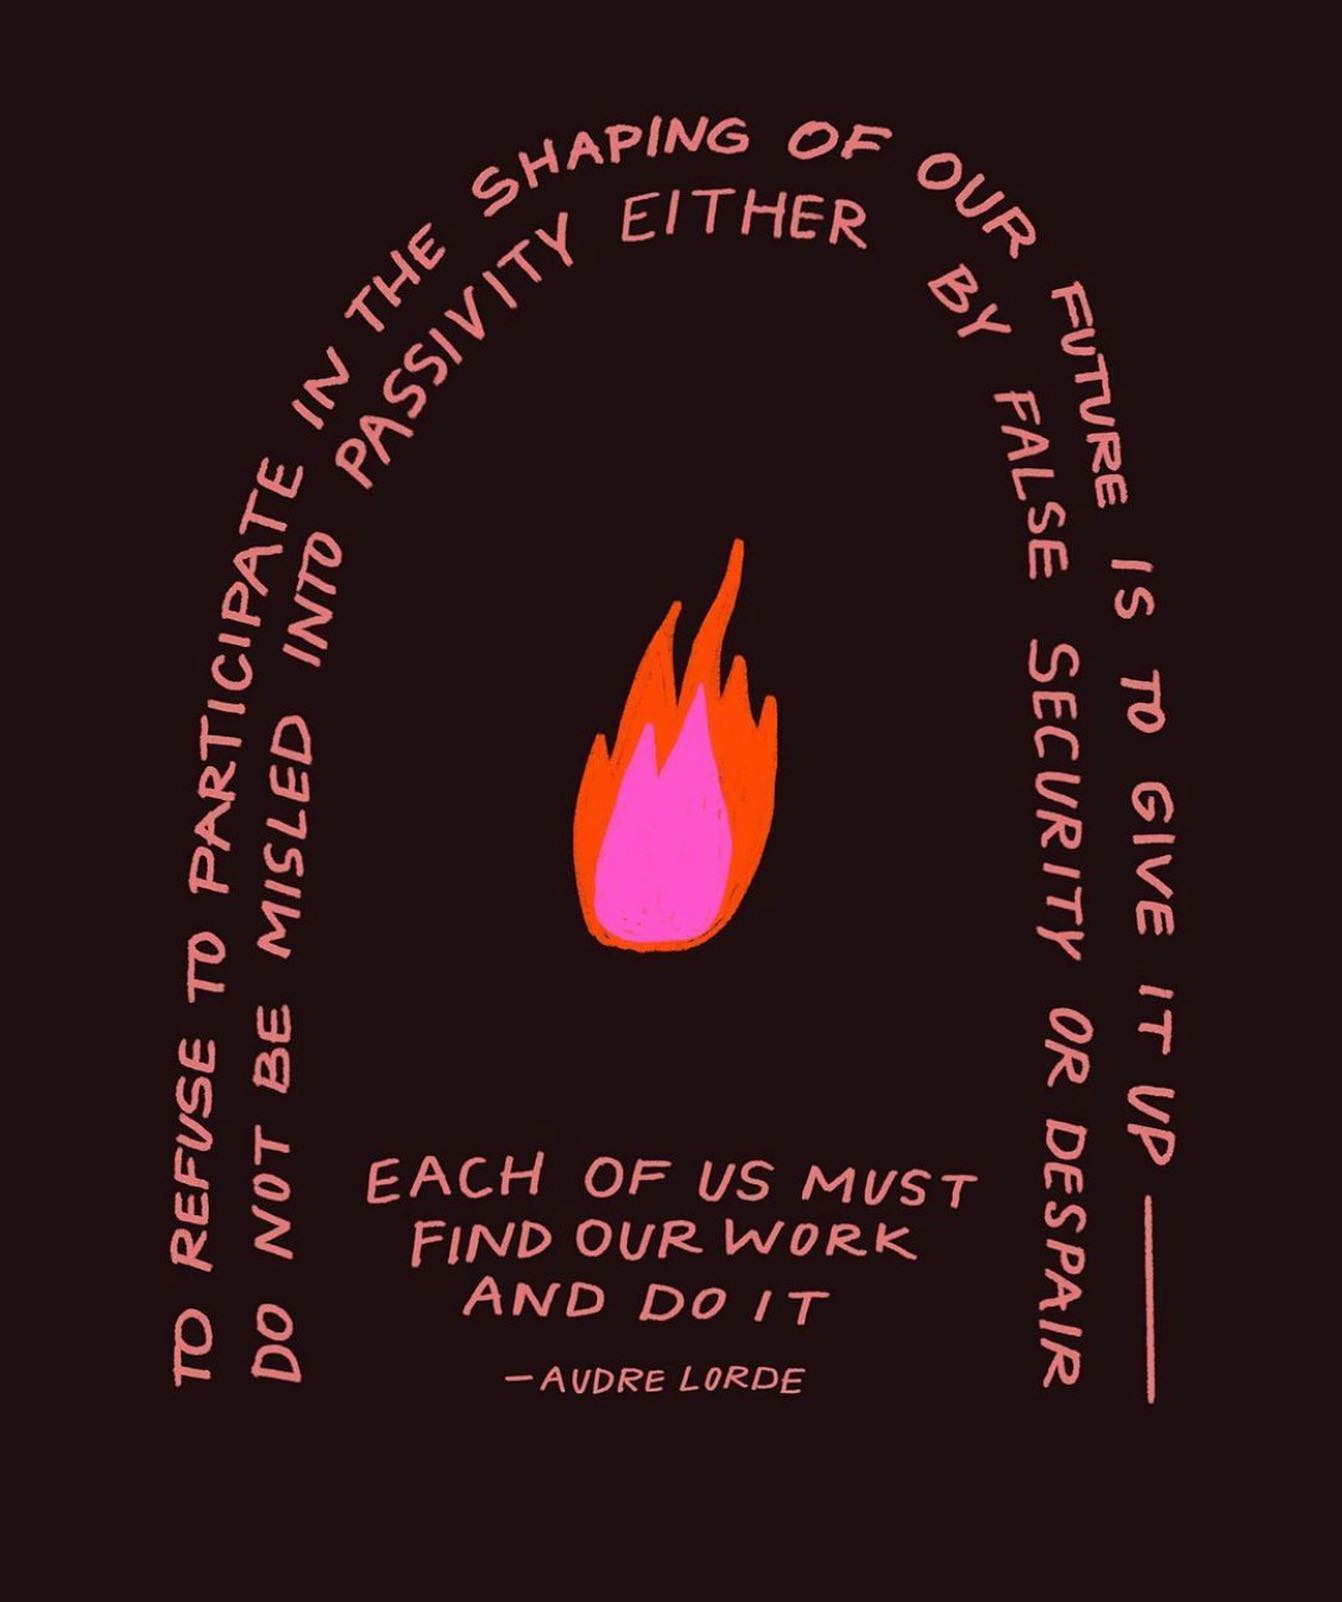 TO REFUSE TO PARTICIPATE IN THE SHAPING OF OUR FUTURE IS TO GIVE IT UP —
DO NOT BE MISLED INTO PASSIVITY EITHER BY FALSE SECURITY OR DESPAIR
EACH OF US MUST
FIND OUR WORK
AND DO IT
—AUDRE LORDE